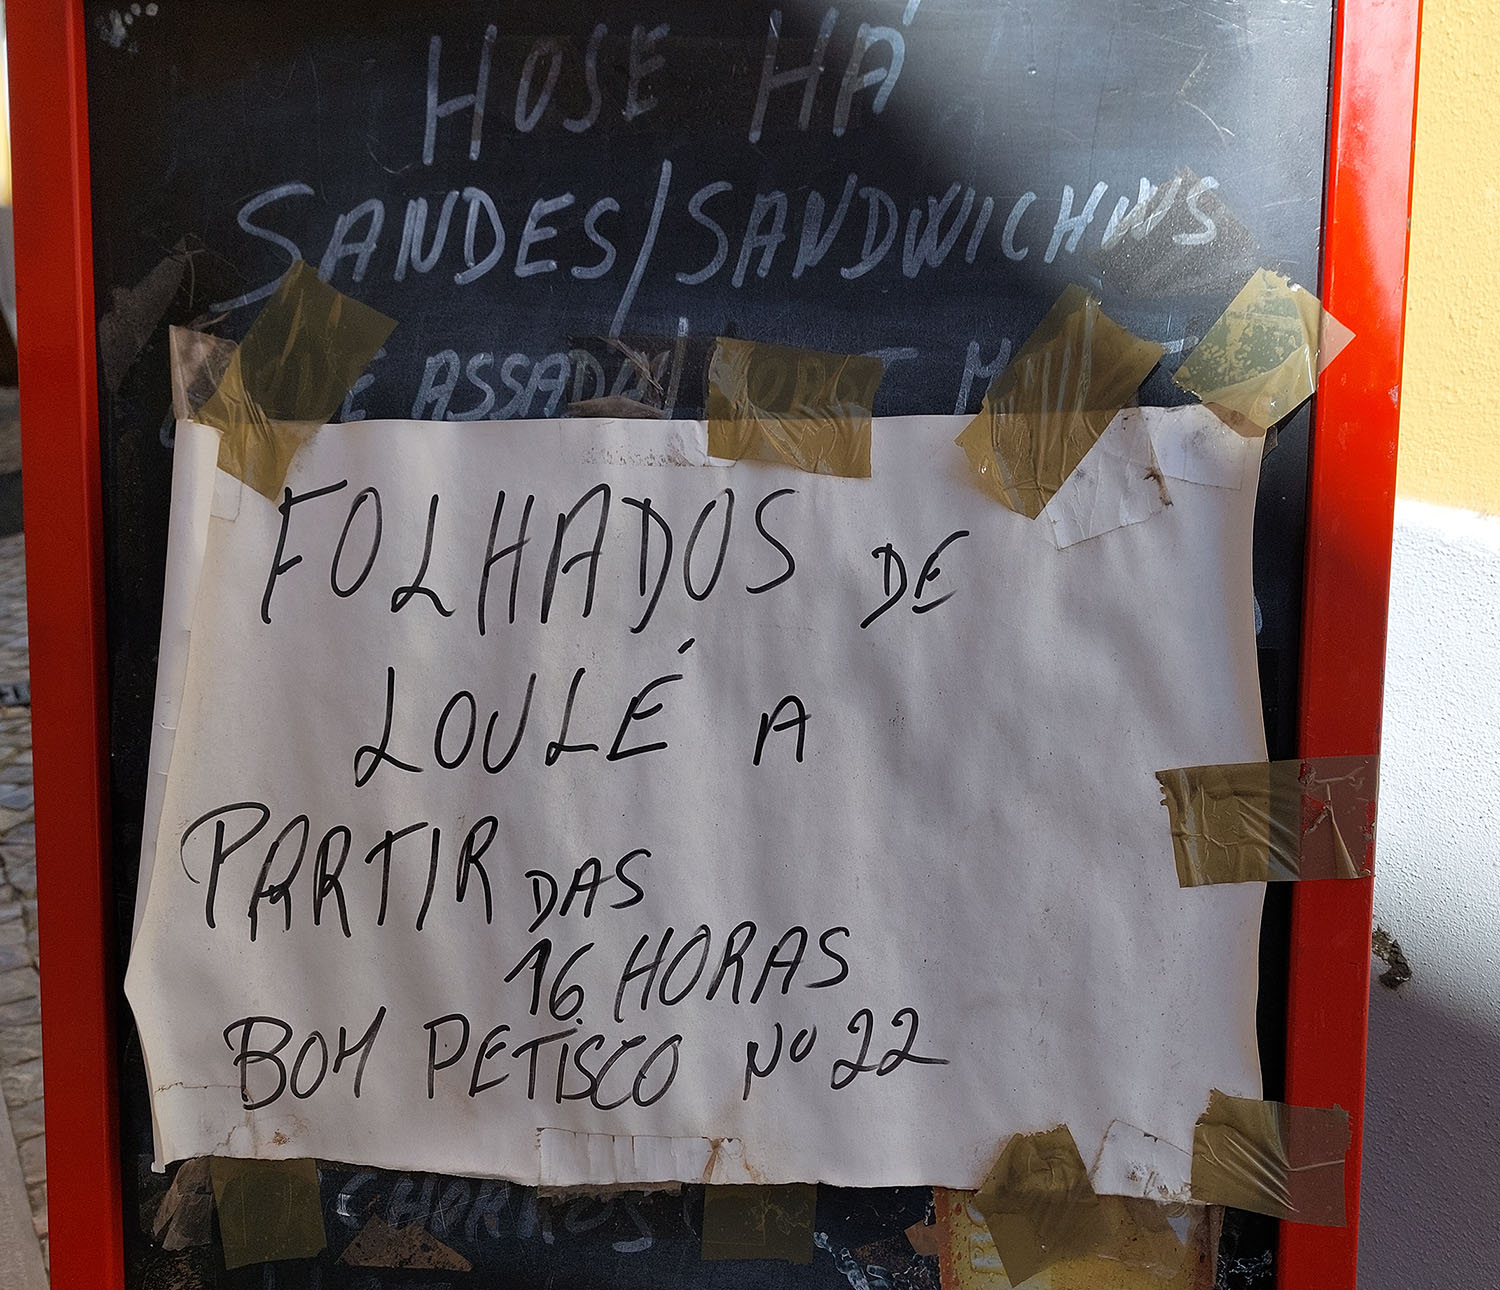 HOSE HÁ
SANDES/SANDWICHNS
ASSADA/
FOLHADOS DE
LOULÉ A
PARTIR DAS
16 HORAS
BOM PETISCO Nº 22